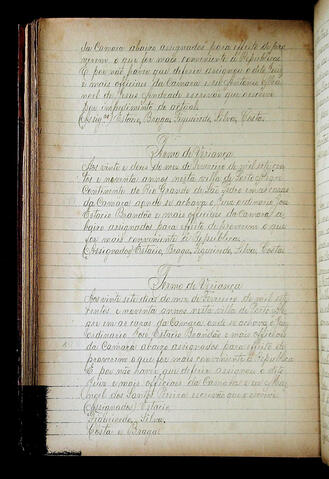 da Camara abaixo assignados para effeito de pro-
verem o que for mais conveniente á Republica.
E por não haver que deferir assignou o dito Juiz
e mais officiaes da Camara e eu Antonio
de Jesus Andrade escrivão que escrevi
por impedimento do actual.
(Assig.os) Estacio, Braga, Figueiredo, Silva, Costa.
Termo de Veriança
Aos vinte e dous do mez de Fevereiro de mil sete cen-
tos e noventa annos nesta villa de Porto Alegre
Continente do Rio Grande de São Pedro em as casas
da Camara aonde se achava o Juiz ordinario José
Estacio Brandão e mais officiaes da Camara a-
baixo assignados para effeito de proverem o que
for mais conveniente á Republica.
(Assignados) Estacio, Braga, Figueiredo, Silva, Costa.
Termo de Veriança
Aos vinte sete dias do mez de Fevereiro de mil sete
centos e noventa annos nesta villa de Porto Ale-
gre em as casas da Camara onde se achava o Juiz
Ordinario José Estacio Brandão e mais officiaes
da Camara abaixo assignados para effeito de
proverem o que for mais conveniente á Republica
E por não haver que deferir assignou o dito
Juiz e mais officiaes da Camara e eu Ma-
noel dos Santos escrivão que escrevi
(Assignados) Estacio,
Figueiredo, Silva,
Costa e Braga.